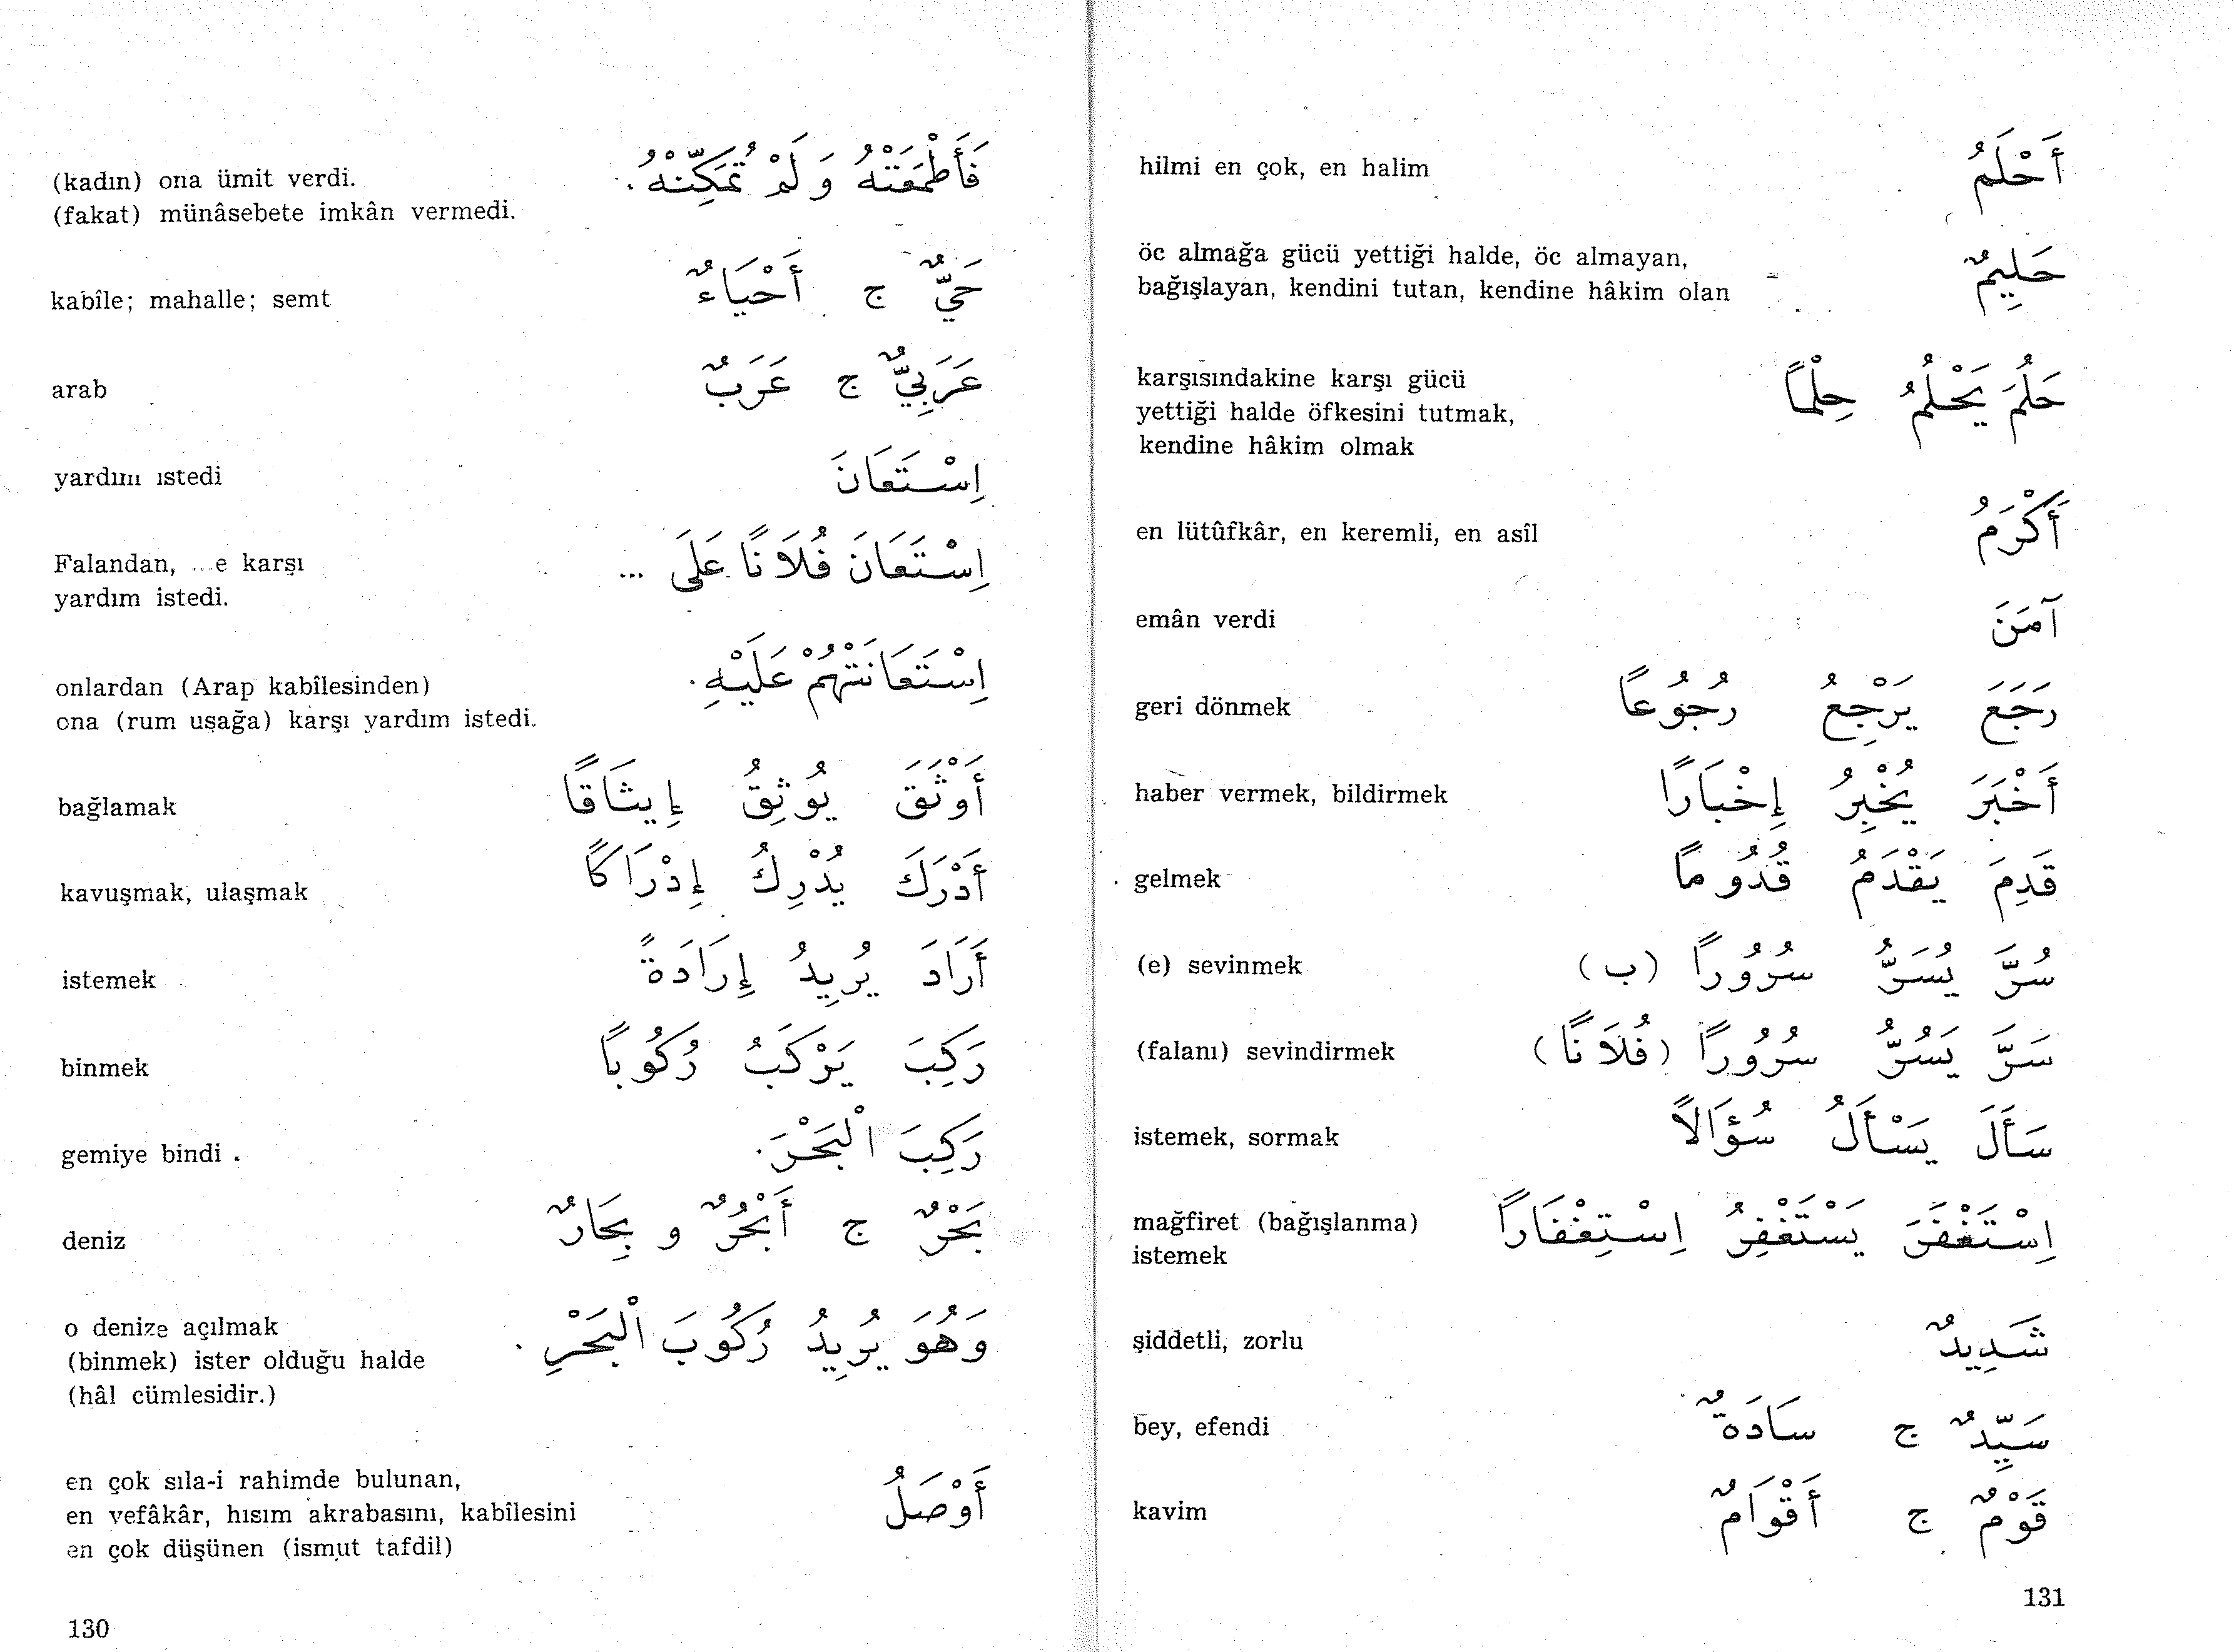 (kadın) ona ümit verdi.
(fakat) münâsebete imkân vermedi.
فَأَطْمَعَتْهُ وَ لَمْ تُمَكِّنْهُ.
kabîle; mahalle; semt
حَيٌّ ج أَحْيَاءٌ
arab
عَرَبِيٌّ ج عَرَبٌ
yardım istedi
اِسْتَعَانَ
Falandan, ...e karşı
yardım istedi.
اِسْتَعَانَ فُلَانًا عَلَى ...
onlardan (Arap kabîlesinden)
ona (rum uşağa) karşı yardım istedi.
اِسْتَعَانَتْهُمْ عَلَيْهِ.
bağlamak
أَوْثَقَ يُوثِقُ إِيثَاقًا
kavuşmak, ulaşmak
أَدْرَكَ يُدْرِكُ إِدْرَاكًا
istemek
أَرَادَ يُرِيدُ إِرَادَةً
binmek
رَكِبَ يَرْكَبُ رُكُوبًا
gemiye bindi.
رَكِبَ الْبَحْرَ.
deniz
بَحْرٌ ج أَبْحُرٌ و بِحَارٌ
o denize açılmak
(binmek) ister olduğu halde
(hâl cümlesidir.)
وَهُوَ يُرِيدُ رُكُوبَ الْبَحْرِ.
en çok sıla-i rahimde bulunan,
en vefâkâr, hısım akrabasını, kabîlesini
en çok düşünen (ismut tafdil)
أَوْصَلُ
130
hilmi en çok, en halim
أَحْلَمُ
öc almağa gücü yettiği halde, öc almayan,
bağışlayan, kendini tutan, kendine hâkim olan
حَلِيمٌ
karşısındakine karşı gücü
yettiği halde öfkesini tutmak,
kendine hâkim olmak
حَلُمَ يَحْلُمُ حِلْمًا
en lütûfkâr, en keremli, en asîl
أَكْرَمُ
emân verdi
آمَنَ
geri dönmek
رَجَعَ يَرْجِعُ رُجُوعًا
haber vermek, bildirmek
أَخْبَرَ يُخْبِرُ إِخْبَارًا
gelmek
قَدِمَ يَقْدَمُ قُدُومًا
(e) sevinmek
سُرَّ يُسَرُّ سُرُورًا (ب)
(falanı) sevindirmek
سَرَّ يَسُرُّ سُرُورًا (فُلَانًا)
istemek, sormak
سَأَلَ يَسْأَلُ سُؤَالًا
mağfiret (bağışlanma)
istemek
اِسْتَغْفَرَ يَسْتَغْفِرُ اِسْتِغْفَارًا
şiddetli, zorlu
شَدِيدٌ
bey, efendi
سَيِّدٌ ج سَادَةٌ
kavim
قَوْمٌ ج أَقْوَامٌ
131